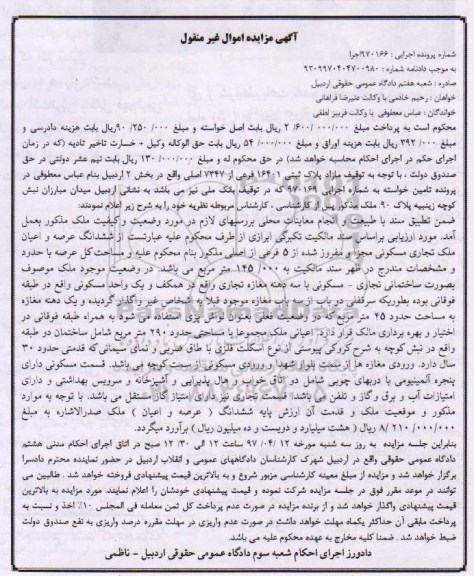 آگهی مزایده اموال غیر منقول
شماره پرونده اجرایی : ۹۷۰۱۶۶/اجرا
به موجب دادنامه شماره : ۹۳۰۹۹۷۰۴۰۴۷۰۰۹۸۰
صادره : شعبه هفتم دادگاه عمومی حقوقی اردبیل
خواهان : رحیم خادمی با وکالت علیرضا فراهانی
خواندگان : عباس معطوفی با وکالت فریبز لطفی
محکوم است به پرداخت مبلغ ۲/۶۰۰/۰۰۰/۰۰۰ ریال بابت اصل خواسته و مبلغ ۹۰/۲۵۰/۰۰۰ ریال بابت هزینه دادرسی و
مبلغ ۳۹۲/۰۰۰ ریال بابت هزینه اوراق و مبلغ ۵۴/۰۰۰/۰۰۰ ریال بابت حق الوکاله وکیل + خسارت تاخیر تادیه (که در زمان
اجرای حکم در اجرای احکام محاسبه خواهد شد) در حق محکوم له و مبلغ ۱۳۰/۰۰۰/۰۰۰ ریال بابت نیم عشر دولتی در حق
صندوق دولت ، با توجه به توقیف مازاد پلاک ثبتی ۱۶۴۰ فرعی از ۷۳۴۷ اصلی واقع در بخش ۲ اردبیل بنام عباس معطوفی در
پرونده تامین خواسته به شماره اجرایی ۹۷۰۱۶۹ که در توقیف بانک ملی نیز می باشد به نشانی اردبیل میدان مبارزان نبش
کوچه زینبیه پلاک ۹۰. ملک مذکور بعد از کارشناسی ، کارشناس مربوطه نظریه خود را به شرح زیر اعلام نمودند:
ضمن تطبیق سند با طبیعت و انجام معاینات محلی بررسیهای لازم در مورد وضعیت و کیفیت ملک مذکور بعمل
آمد. مورد ارزیابی براساس سند مالکیت تکبرگی ابرازی از طرف محکوم علیه عبارتست از ششدانگ عرصه و اعیان
ملک تجاری مسکونی مجزا و مفروز شده از ۵ فرعی از اصلی مذکور بنام محکوم علیه و مساحت کل عرصه با حدود
و مشخصات مندرج در ظهر سند مالکیت به ۱۴۵/۰۰۰ متر مربع می باشد. در وضعیت موجود ملک موصوف
بصورت ساختمانی تجاری - مسکونی با سه دهنه مغازه تجاری واقع در همکف و یک واحد مسکونی واقع در طبقه
فوقانی بوده بطوریکه سرقفلی دو باب از سه باب مغازه موجود قبلا به اشخاص غیر واگذار گردیده و یک دهنه مغازه
به مساحت حدود ۴۵ متر مربع که در وضعیت فعلی بعنوان لوکس بری استفاده می شود به همراه طبقه فوقانی در
اختیار و بهره برداری مالک قرار دارد. اعیانی ملک مجموعا با مساحتی حدود ۲۹۰ متر مربع شامل ساختمان دو طبقه
واقع در نبش کوچه به شرح کروکی پیوستی از نوع اسکلت فلزی با طاق ضربی و نمای سیمانی که قدمتی حدود ۳۰
سال دارد. ورودی مغازه ها از سمت بلوار شهدا و ورودی مسکونی از سمت کوچه می باشد. قسمت مسکونی دارای
پنجره آلمینیومی با دربهای چوبی شامل دو اتاق خواب ، هال پذیرایی و آشپزخانه و سرویس بهداشتی و دارای
امتیازات آب و برق و گاز و تلفن می باشد. قسمت تجاری نیز دارای امتیاز گاز مستقل می باشد. با توجه به موارد
مذکور و موقعیت ملک و قدمت آن ارزش پایه ششدانگ ( عرصه و اعیان ) ملک صدرالاشاره به مبلغ
۸/۲۱۰/۰۰۰/۰۰۰ ریال ( هشت میلیارد و دویست و ده میلیون ریال ) برآورد میگردد.
بنابراین جلسه مزایده به روز سه شنبه مورخه ۱۲ /۰۴/ ۹۷ ساعت ۱۲ الی ۱۲/۳۰ صبح در اتاق اجرای احکام مدنی هشتم
دادگاه عمومی حقوقی واقع در اردبیل شهرک کارشناسان دادگاههای عمومی و انقلاب اردبیل در حضور نماینده محترم دادسرا
برگزار خواهد شد و مزایده از مبلغ معینه کارشناسی مزبور شروع و به بالاترین قیمت پیشنهادی فروخته خواهد شد . طالبین می
توانند در موعد مقرر فوق در جلسه مزایده شرکت نموده و قیمت پیشنهادی خودشان را اعلام نمایند. مورد مزایده به بالاترین
قیمت پیشنهادی واگذار خواهد شد و از برنده مزایده در صورت عدم پرداخت کل ثمن معامله فی المجلس ۱۰٪ اخذ و نسبت به
پرداخت مابقی آن حداکثر یکماه مهلت خواهد داشت در صورت عدم واریزی در مهلت مقرره درصد واریزی به نفع صندوق دولت
ضبط خواهد شد . ضمنا کلیه مخارج به عهده محکوم علیه می باشد.
دادورز اجرای احکام شعبه سوم دادگاه عمومی حقوقی اردبیل - ناظمی